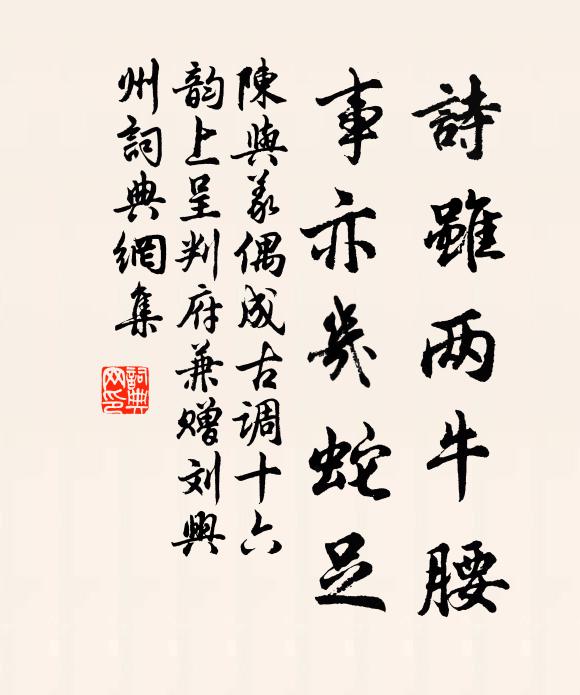 詩雖两牛腰
事亦几蛇足
陳與義偶成古调十六
韵上呈判府兼赠刘興
州詞典網集
詞典网印